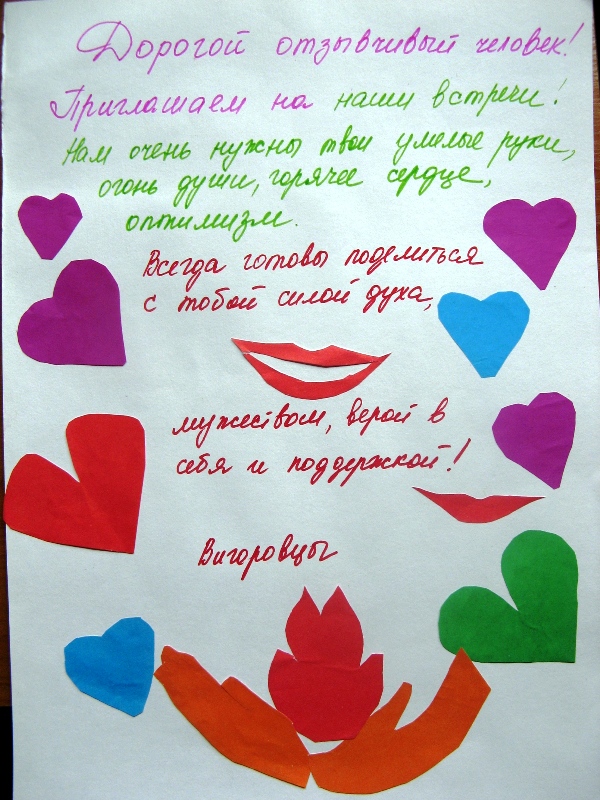 Дорогой отзывчивый человек!
Приглашаем на наши встречи!
Нам очень нужны твои умелые руки,
огонь души, горячее сердце,
оптимизм.
Всегда готовы поделиться
с тобой силой духа,
мужеством, верой в
себя и поддержкой!
Вигоровцы